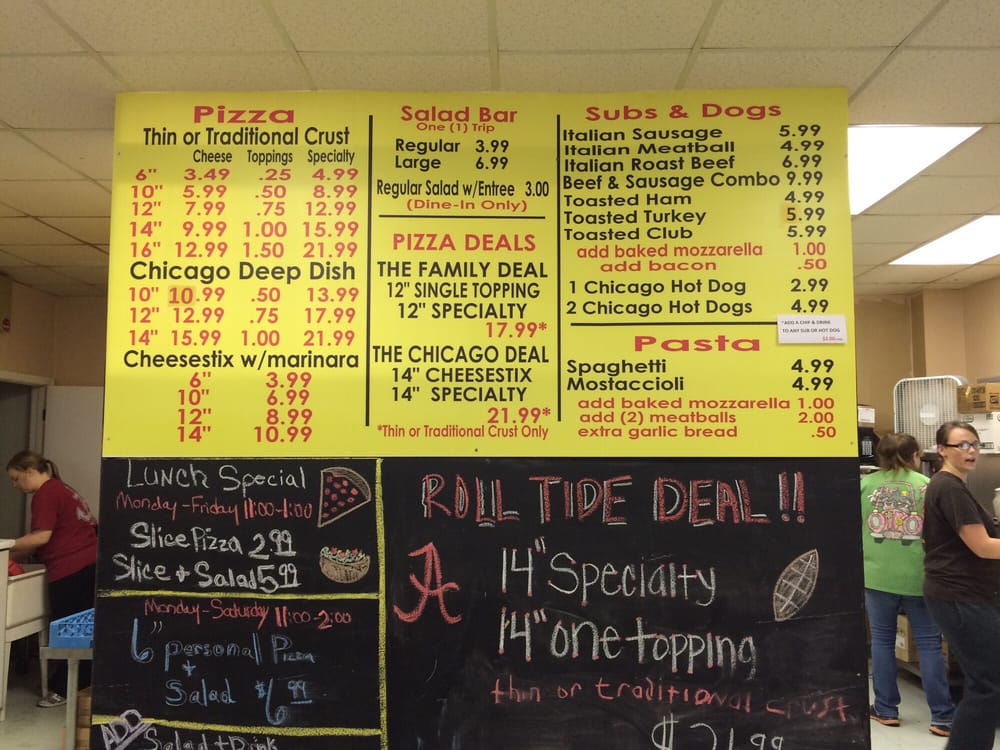 Pizza
Thin or Traditional Crust
Cheese Toppings Specialty
6" 3.49 .25 4.99
10" 5.99 .50 8.99
12" 7.99 .75 12.99
14" 9.99 1.00 15.99
16" 12.99 1.50 21.99
Chicago Deep Dish
10" 10.99 .50 13.99
12" 12.99 .75 17.99
14" 15.99 1.00 21.99
Cheesestix w/marinara
6" 3.99
10" 6.99
12" 8.99
14" 10.99
Salad Bar
One (1) Trip
Regular 3.99
Large 6.99
Regular Salad w/Entree 3.00
(Dine-In Only)
PIZZA DEALS
THE FAMILY DEAL
12" SINGLE TOPPING
12" SPECIALTY
17.99*
THE CHICAGO DEAL
14" CHEESESTIX
14" SPECIALTY
21.99*
*Thin or Traditional Crust Only
Subs & Dogs
Italian Sausage 5.99
Italian Meatball 4.99
Italian Roast Beef 6.99
Beef & Sausage Combo 9.99
Toasted Ham 4.99
Toasted Turkey 5.99
Toasted Club 5.99
add baked mozzarella 1.00
add bacon .50
1 Chicago Hot Dog 2.99
2 Chicago Hot Dogs 4.99
*ADD A CHIP & DRINK
TO ANY SUB OR HOT DOG
Pasta
Spaghetti 4.99
Mostaccioli 4.99
add baked mozzarella 1.00
add (2) meatballs 2.00
extra garlic bread .50
Lunch Special
Monday-Friday 11:00-1:00
Slice Pizza 2.99
Slice + Salad 5.99
Monday-Saturday 11:00-2:00
6" personal Pizza
+
Salad $6.99
ADD
Salad + Drink
ROLL TIDE DEAL!!
A
14" Specialty
14" one topping
thin or traditional crust
$21.99